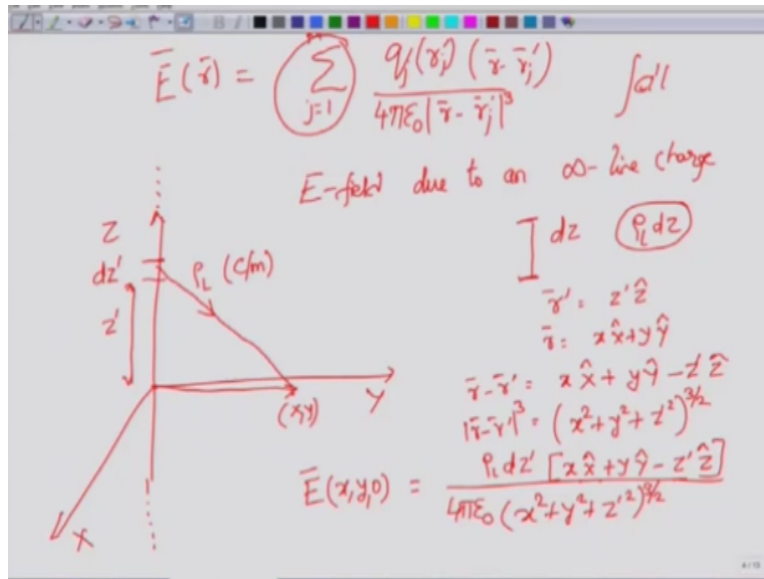 Ē(r̄) = ∑ j=1 qj(rj)(r̄-r̄j') / 4πε₀|r̄-r̄j'|³
E-field due to an ∞-line charge
Z
dz'
z'
ρL (C/m)
(x,y)
Y
X
dz ρL dz
r̄' = z'ẑ
r̄ = x x̂+y ŷ
r̄-r̄' = x x̂ + y ŷ -z' ẑ
|r̄-r̄'|³ = (x²+y²+z'²)^3/2
Ē(x,y,0) = ρL dz' [x x̂+y ŷ - z' ẑ] / 4πε₀(x²+y²+z'²)^3/2